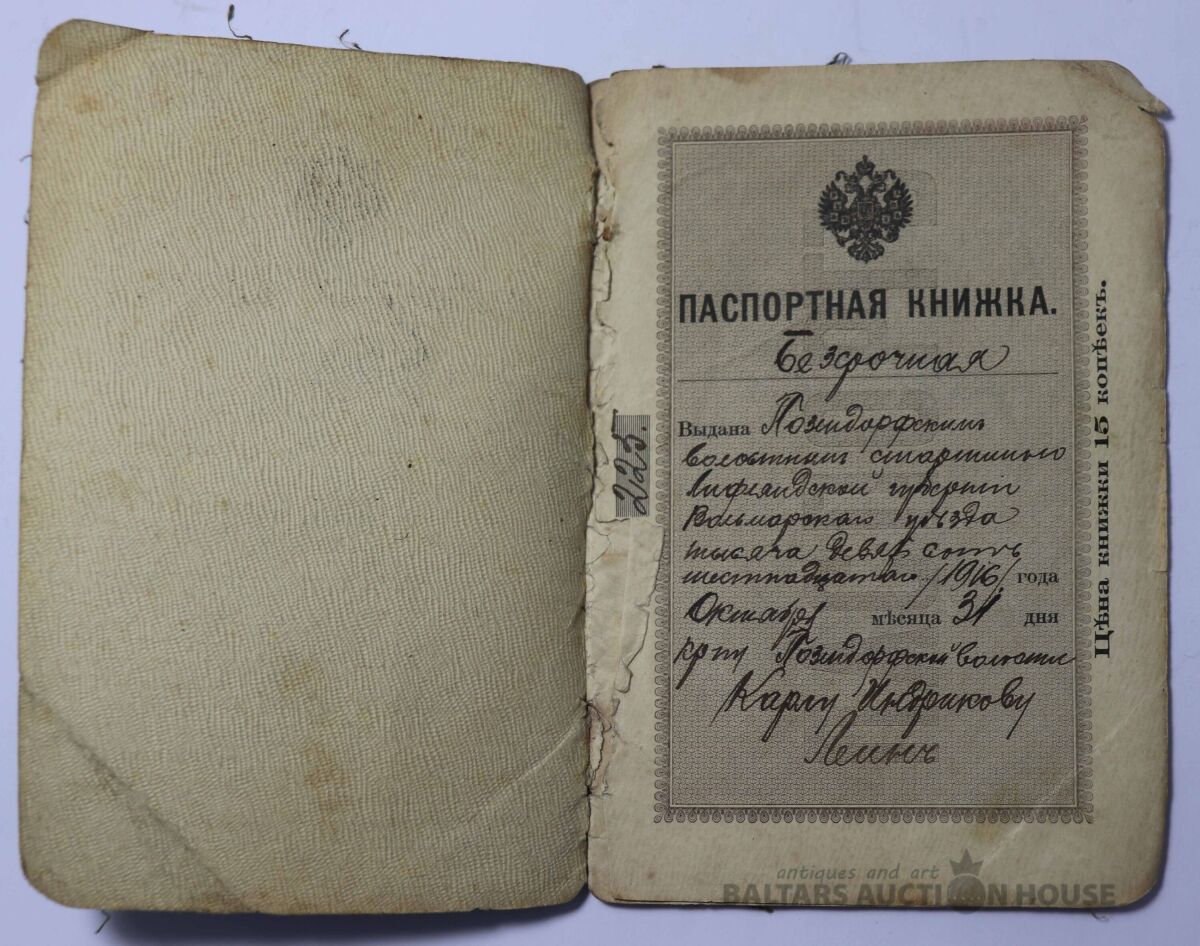 225.
ПАСПОРТНАЯ КНИЖКА.
Безсрочная
Выдана Позендорфскимъ
волостнымъ старшиною
Лифляндской губернии
Вольмарскаго уѣзда
тысяча девятсотъ
шестнадцатаго /1916/ года
Октября мѣсяца 31 дня
кр-ну Позендорфской волости
Карлу Индрикову
Леинь
Цѣна книжки 15 копѣекъ.
antiques and art
BALTARS AUCTION HOUSE